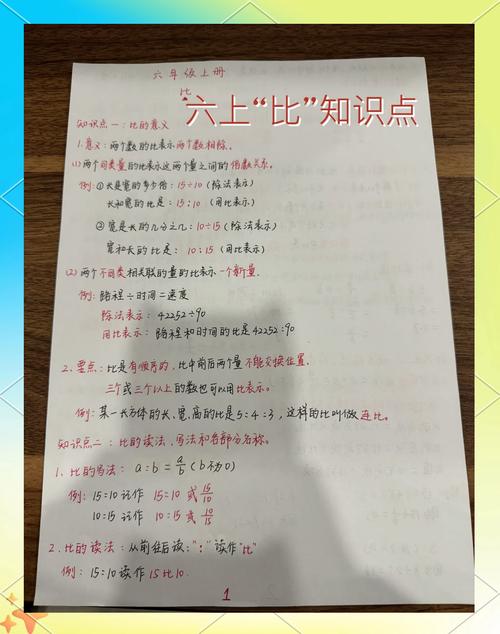 六年级上册
比
六上“比”知识点
知识点一：比的意义
1.意义：两个数的比表示两个数相除。
(1)两个同类量的比表示这两个量之间的倍数关系。
例：①长是宽的多少倍：15÷10（除法表示）
长和宽的比是：15：10（用比表示）
②宽是长的几分之几：10÷15（除法表示）
宽和长的比是：10：15（用比表示）
(2)两个不同类相关联的量的比表示一个新量.
例：路程÷时间=速度
除法表示：42252÷90
用比表示：路程和时间的比是42252:90
2.要点：比是有顺序的，比中前后两个量不能交换位置.
三个或三个以上的数也可以用比表示。
例：某一长方体的长、宽、高的比是5:4:3，这样的比叫做连比。
知识点二：比的读法、写法和各部分名称。
1、比的写法：a:b=a/b（b不为0）
例：15:10记作 15:10 或 15/10
10:15 记作 10:15 或 10/15
2.比的读法：从前往后读；“：”读作“比”
例：15:10读作15比10.
1